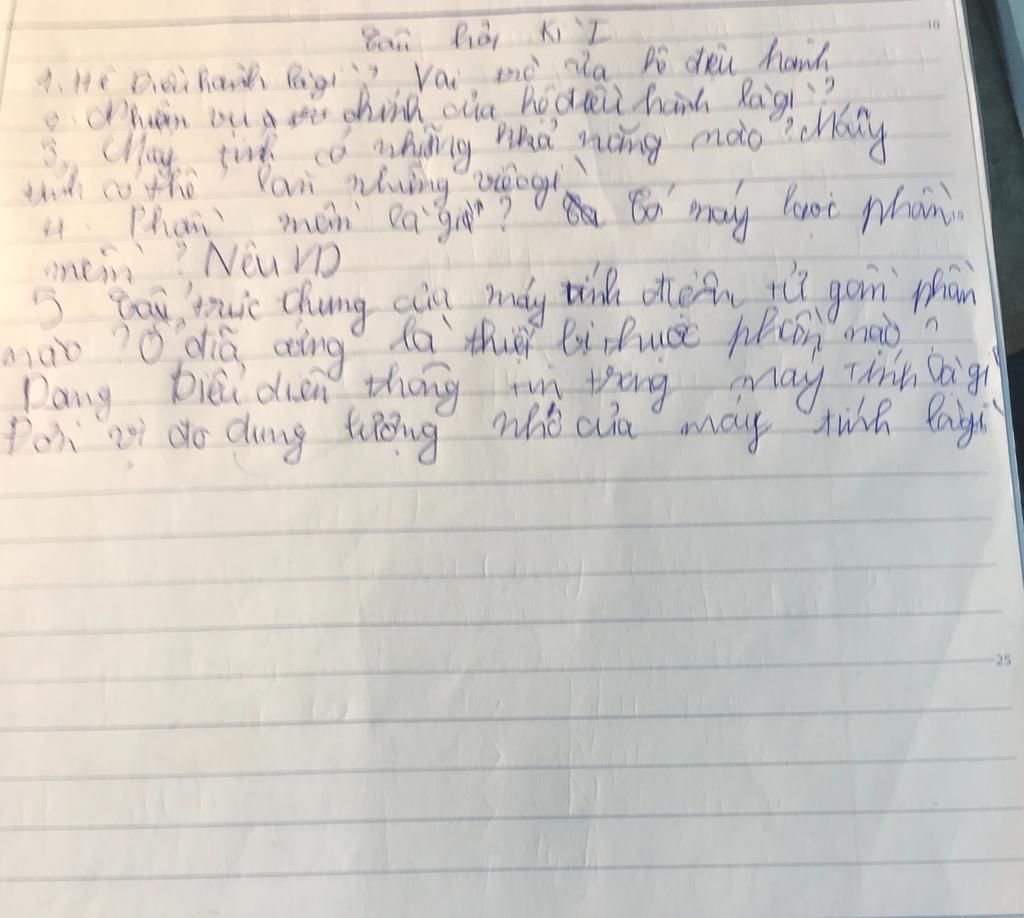 Câu hỏi Kì I
1. Hệ Điều hành là gì? Vai trò của hệ điều hành
2. Nhiệm vụ chính của hệ điều hành là gì?
3. Máy tính có những khả năng nào? Máy
tính có thể làm những việc gì
4. Phần mềm là gì? Có mấy loại phần
mềm? Nêu VD
5 Cấu trúc chung của máy tính điện tử gồm phần
nào? Ổ đĩa cứng là thiết bị thuộc phần nào?
Dạng biểu diễn thông tin trong máy tính là gì
Đơn vị đo dung lượng nhớ của máy tính là gì
10
25